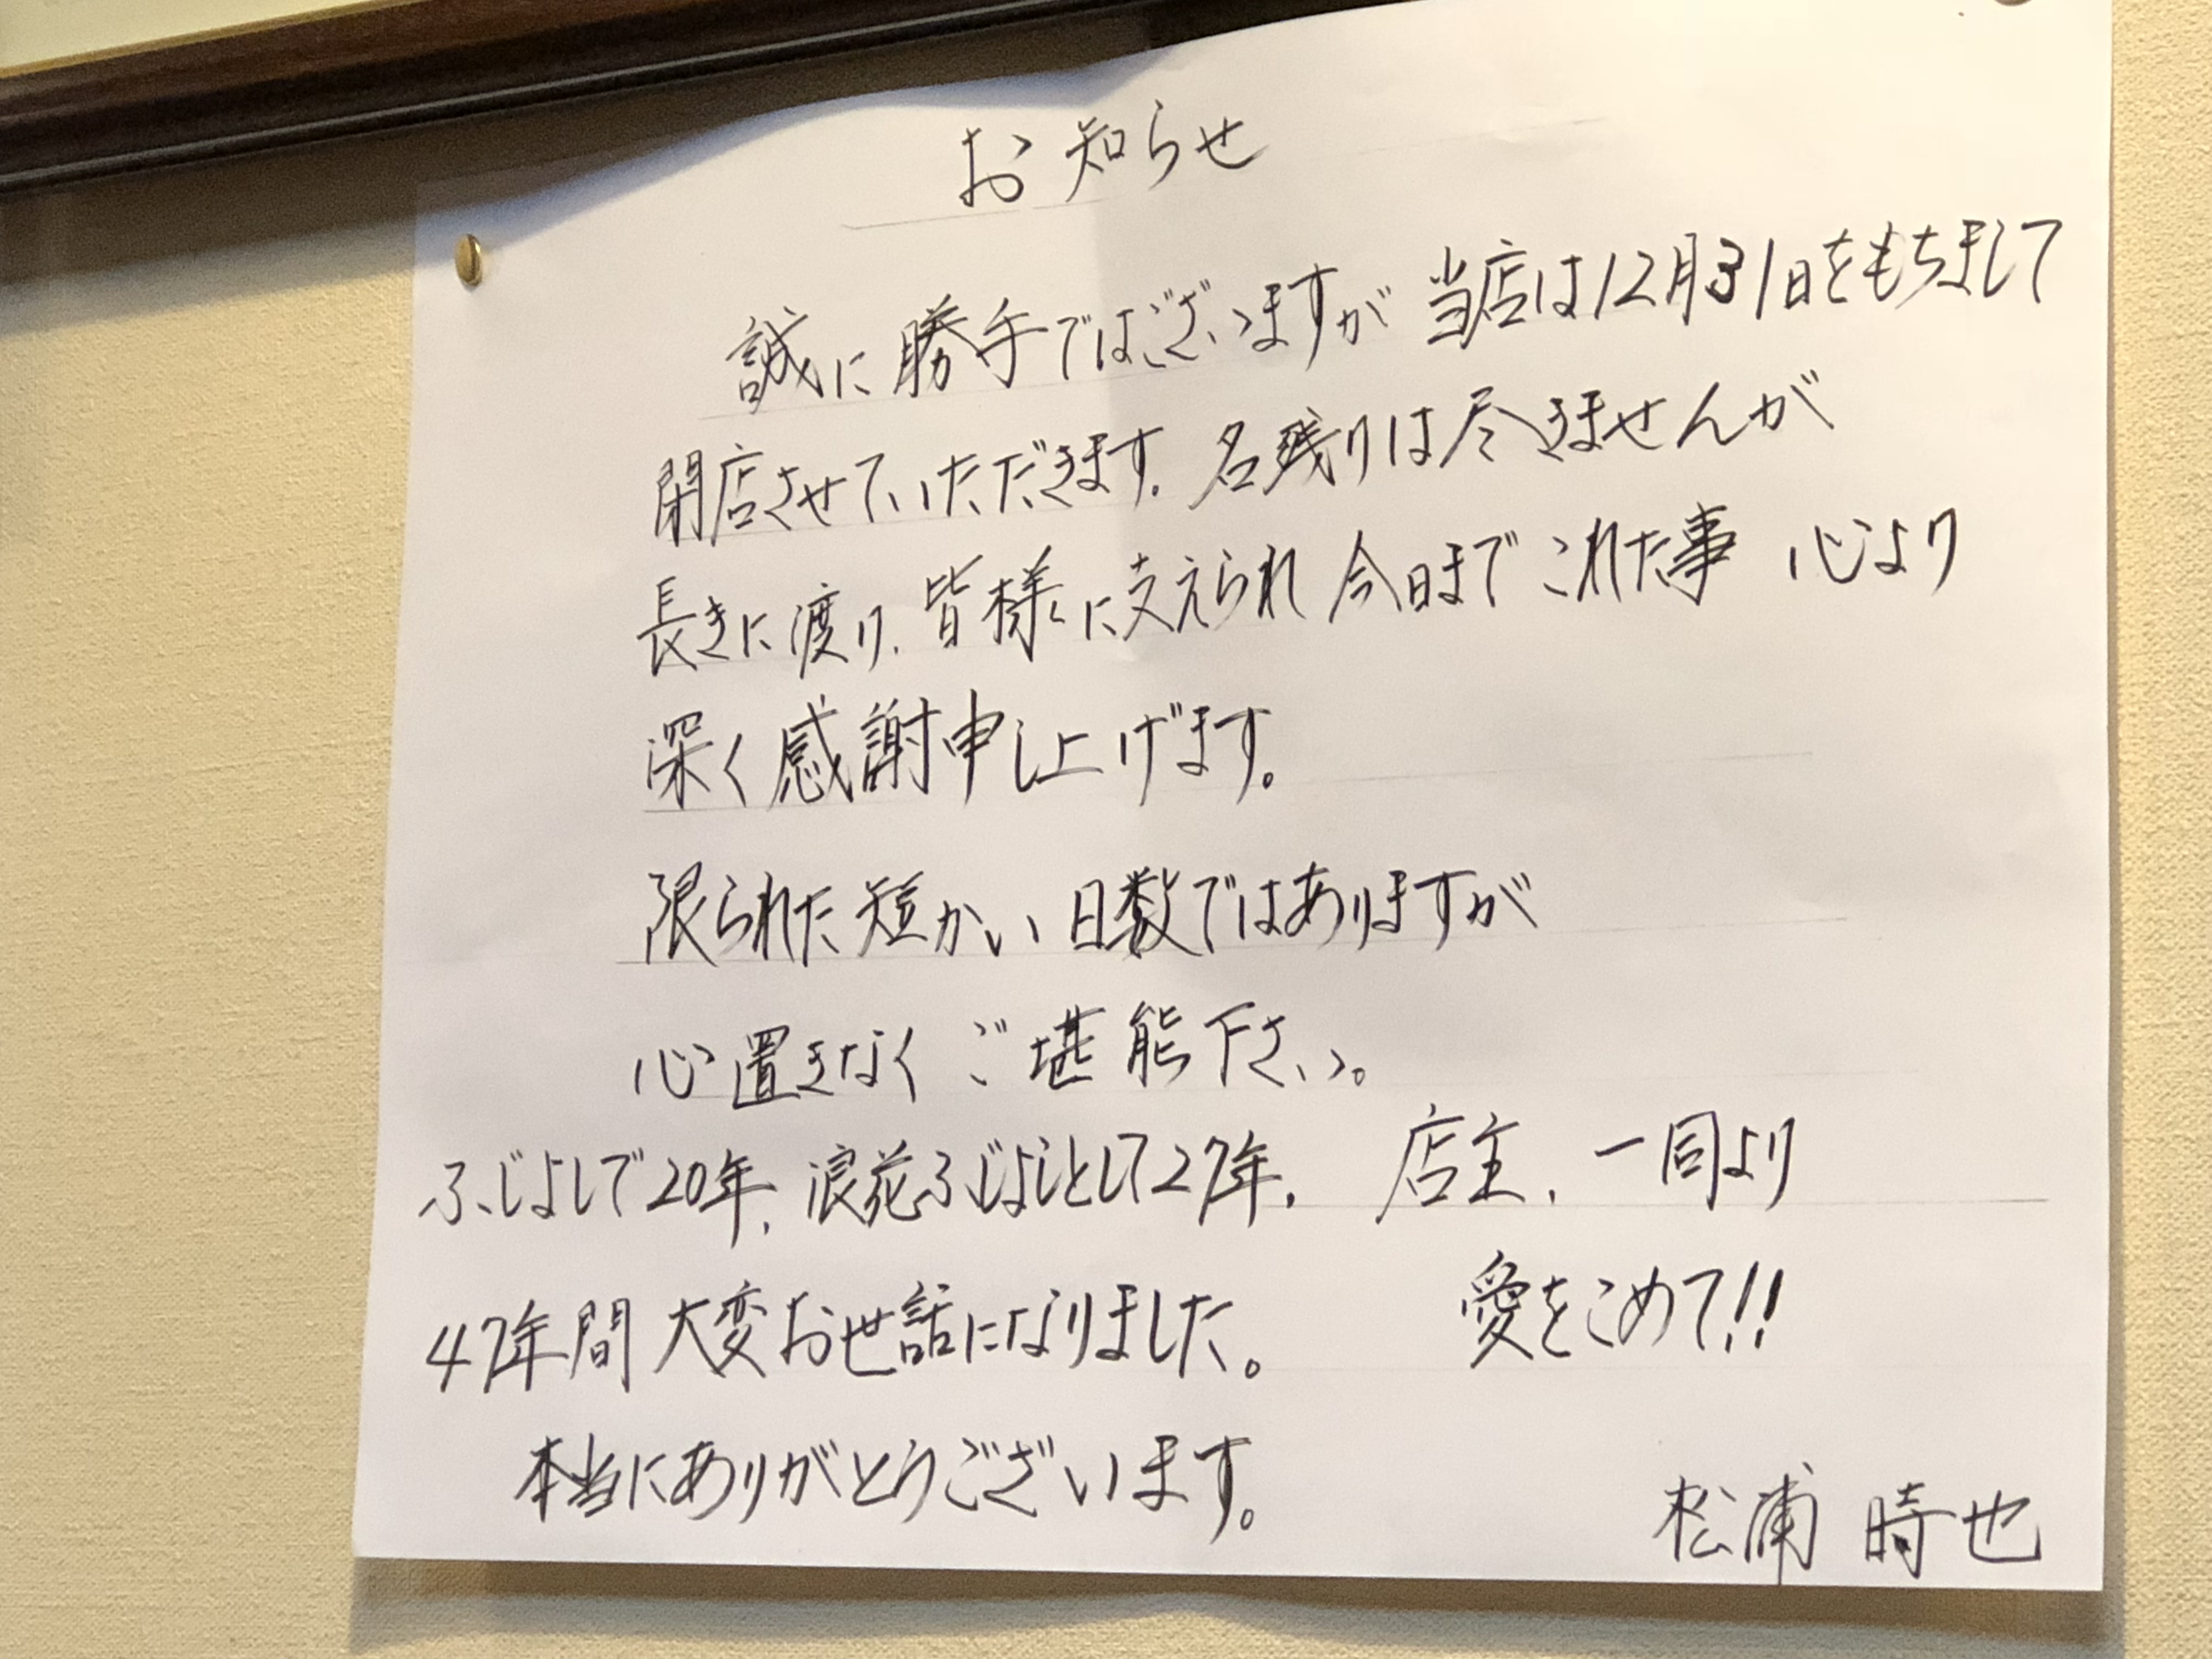 お知らせ
誠に勝手ではございますが 当店は12月31日をもちまして
閉店させていただきます。名残りは尽きませんが
長きに渡り、皆様に支えられ 今日までこれた事 心より
深く感謝申し上げます。
限られた短かい日数ではありますが
心置きなく ご堪能下さい。
ふじよしで20年、浪花ふじよしとして27年、
47年間 大変お世話になりました。
本当にありがとうございます。
店主、一同より
愛をこめて!!
松浦 時也